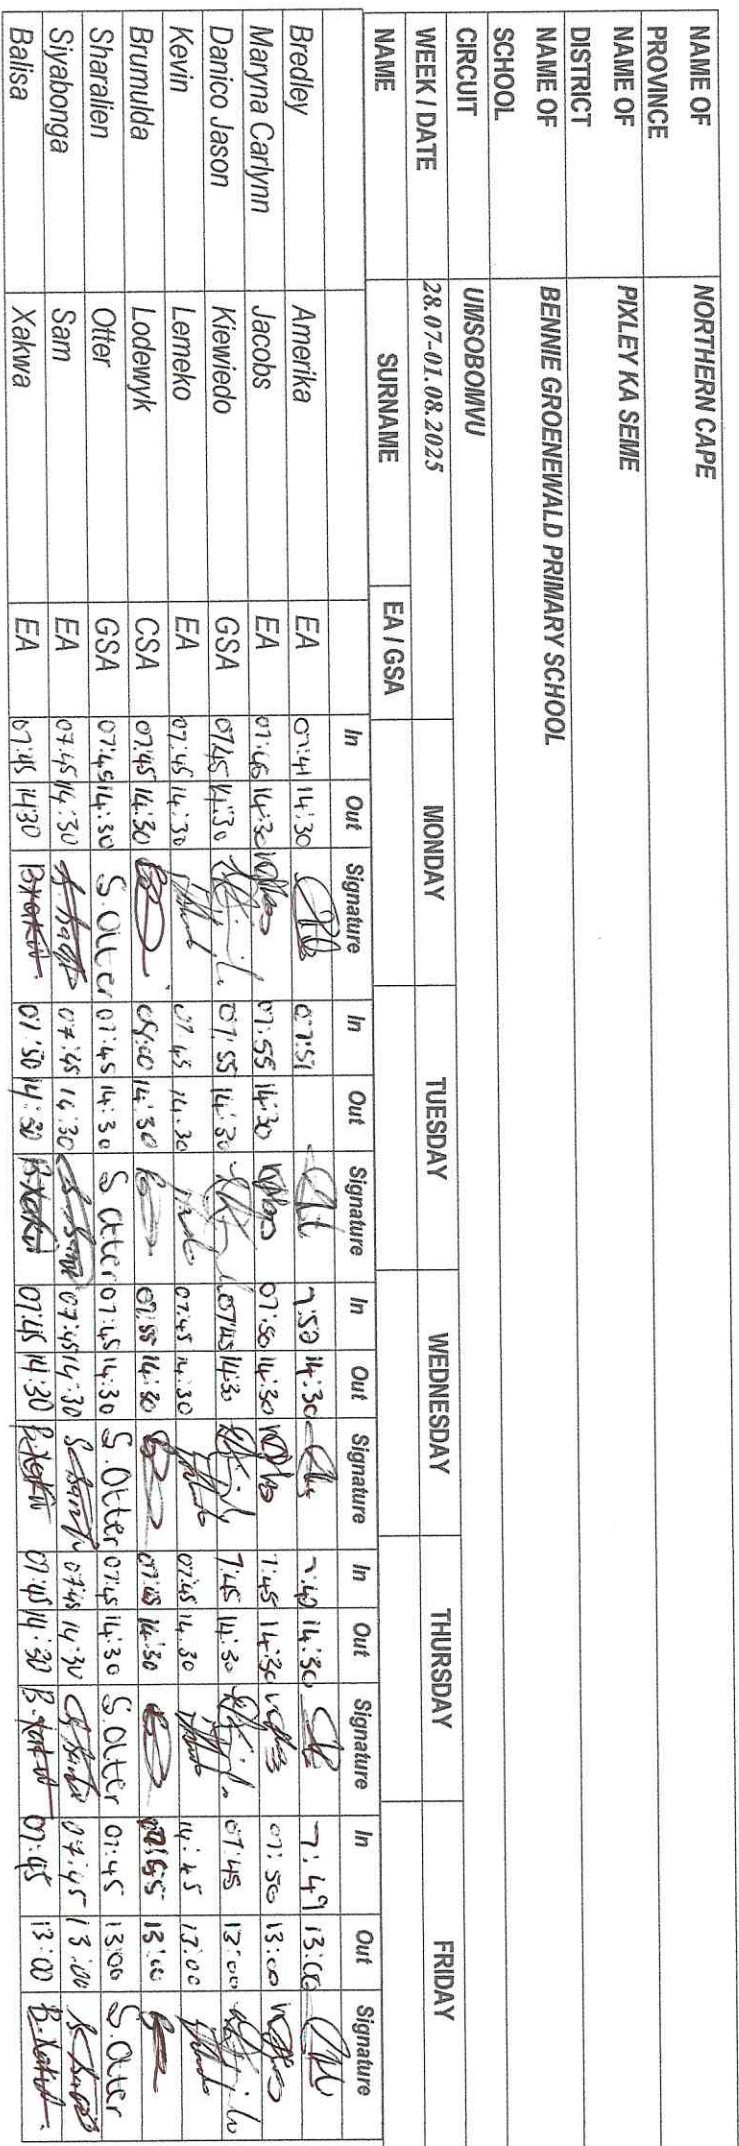 NAME OF PROVINCE NORTHERN CAPE
NAME OF DISTRICT PIXLEY KA SEME
NAME OF SCHOOL BENNIE GROENEWALD PRIMARY SCHOOL
CIRCUIT UMSOBOMVU
WEEK / DATE 28.07-01.08.2025 MONDAY TUESDAY WEDNESDAY THURSDAY FRIDAY
NAME SURNAME EA / GSA
In Out Signature In Out Signature In Out Signature In Out Signature In Out Signature
Bredley Amerika EA 07:41 14:30 07:51 14:30 14:30 7:49 13:00
Maryna Carlynn Jacobs EA 07:45 14:30 07:55 14:30 07:50 14:30 7:45 14:30 07:50 13:00
Danico Jason Kiewiedo GSA 07:45 14:30 07:55 14:30 07:45 14:30 7:45 14:30 07:45 13:00
Kevin Lemeko EA 07:45 14:30 07.45 14.30 07:45 14:30 07:45 14.30 14:45 13:00
Brumulda Lodewyk CSA 07:45 14:30 08:00 14:30 07:55 14:30 07:45 14:30 13:00
Sharalien Otter GSA 07:45 14:30 S.Otter 07:45 14:30 S Otter 07:45 14:30 S.Otter 07:45 14:30 S.Otter 07:45 13:00 S.Otter
Siyabonga Sam EA 07:45 14:30 07:45 14:30 07:45 14:30 07:45 14:30 07:45 13:00
Balisa Xakwa EA 07:45 14:30 07:50 14:30 07:45 14:30 07:45 14:30 07:45 13:00